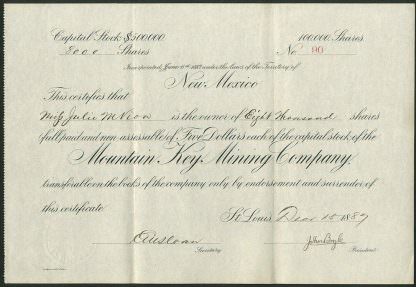 Capital Stock $500,000. 100,000 Shares
8000 Shares No 90
Incorporated June 6th 1887 under the laws of the Territory of
New Mexico
This certifies that
Miss Julie M is the owner of Eight Thousand shares
full paid and non-assessable of Five Dollars each of the capital stock of the
Mountain Key Mining Company
transferable on the books of the company only by endorsement and surrender of
this certificate
St Louis Decr 15 1887
Secretary John Boyle President